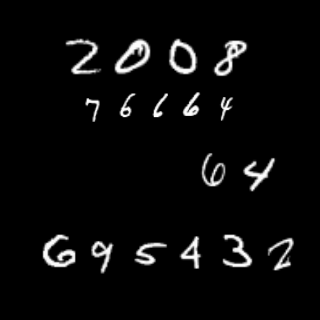 2008
76664
64
695432